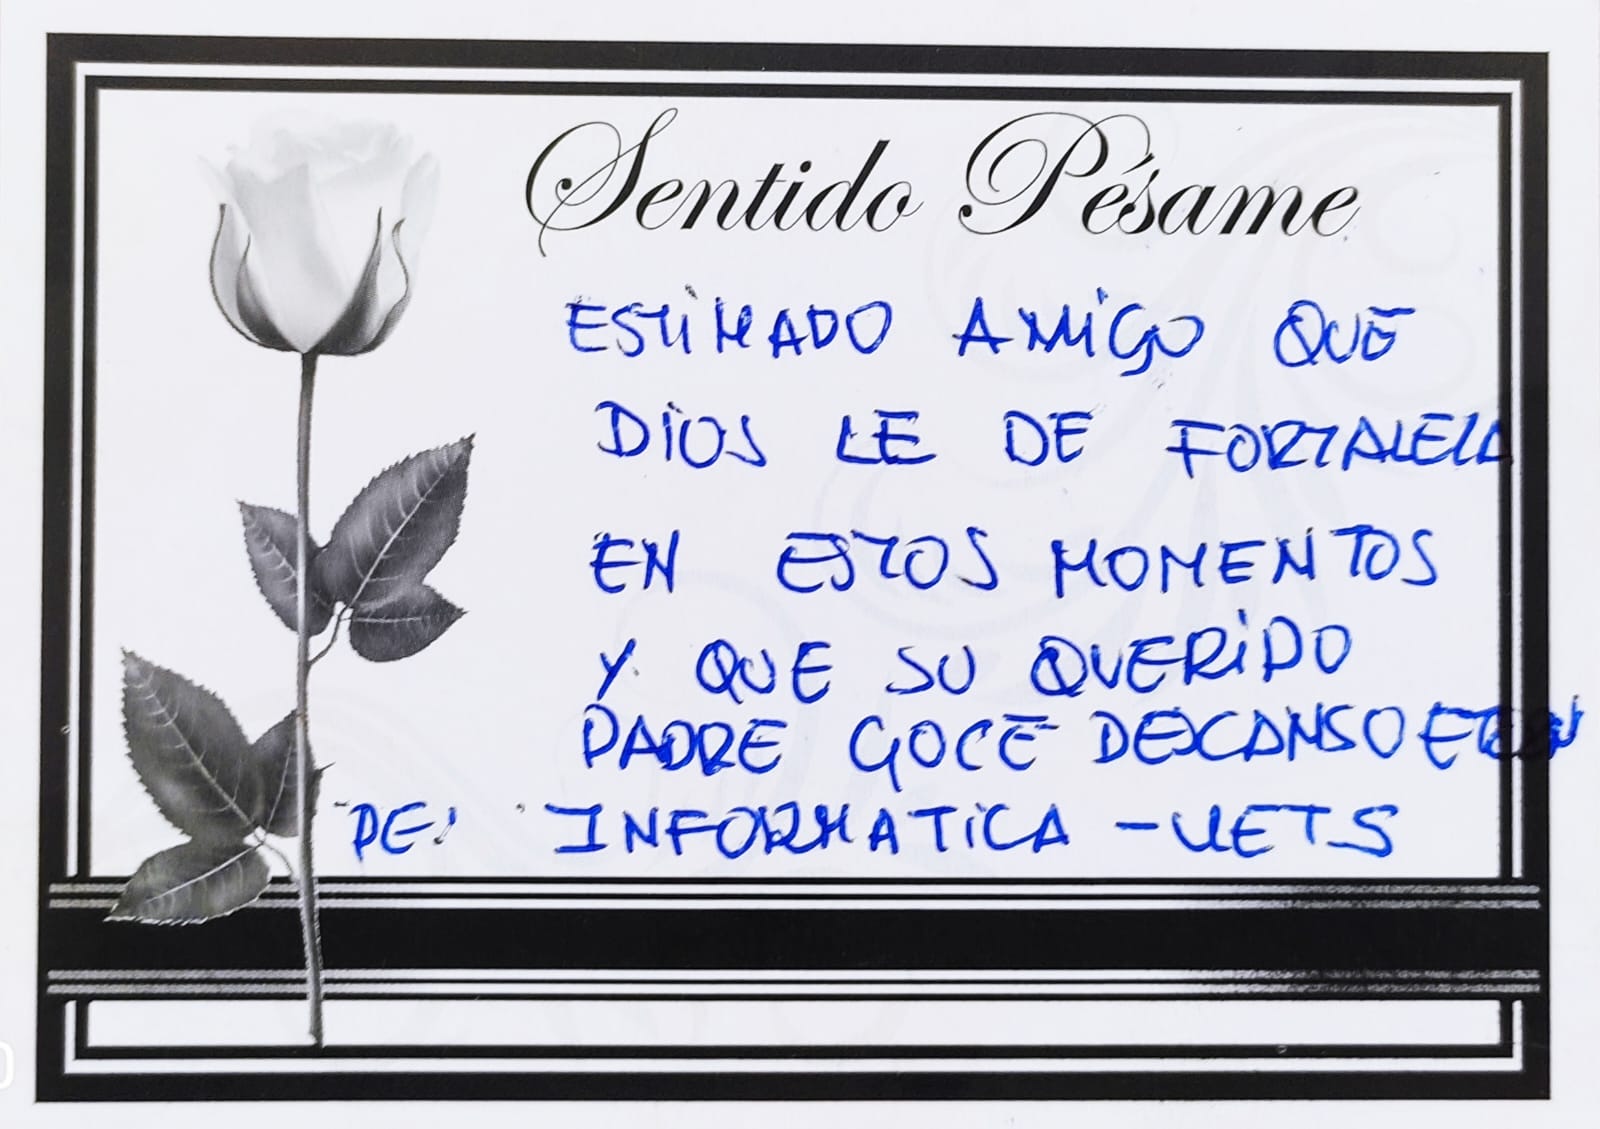 Sentido Pésame
ESTIMADO AMIGO QUE
DIOS LE DE FORTALEZA
EN ESTOS MOMENTOS
Y QUE SU QUERIDO
PADRE GOCE DESCANSO
DE: INFORMATICA - UETS